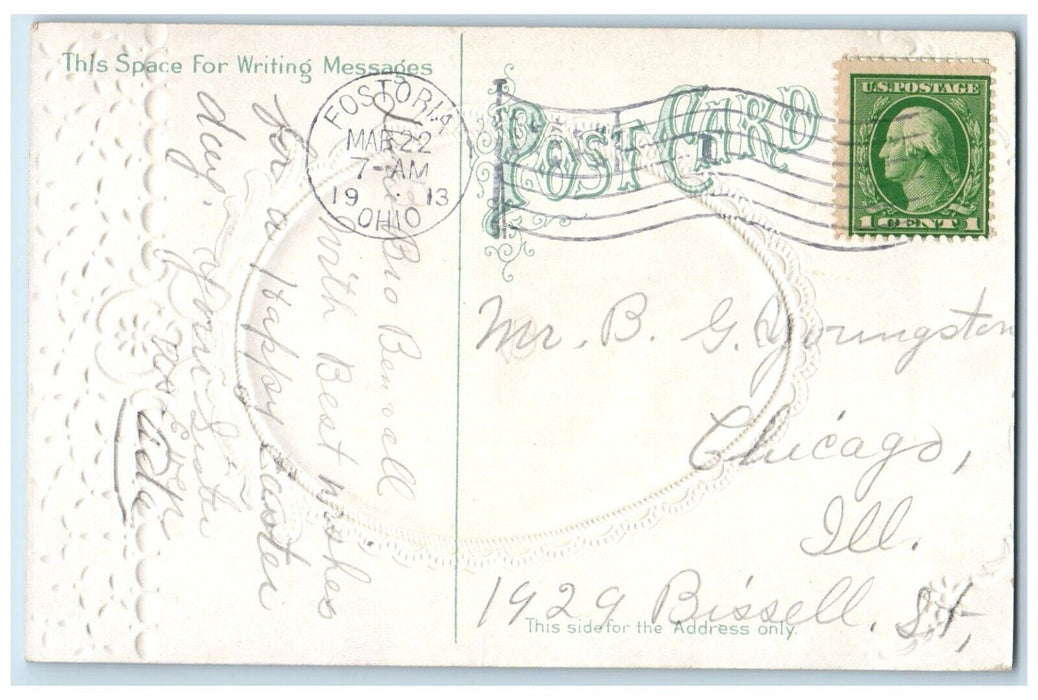 This Space For Writing Messages
FOSTORIA
MAR 22
7-AM
1913
OHIO
POST CARD
U.S. POSTAGE
1 CENT 1
Bro Benvall
With Best Wishes
for a Happy Easter
day
your Sister
Ada
Mr. B. G. Youngston
Chicago,
Ill.
1929 Bissell. St,
This side for the Address only.